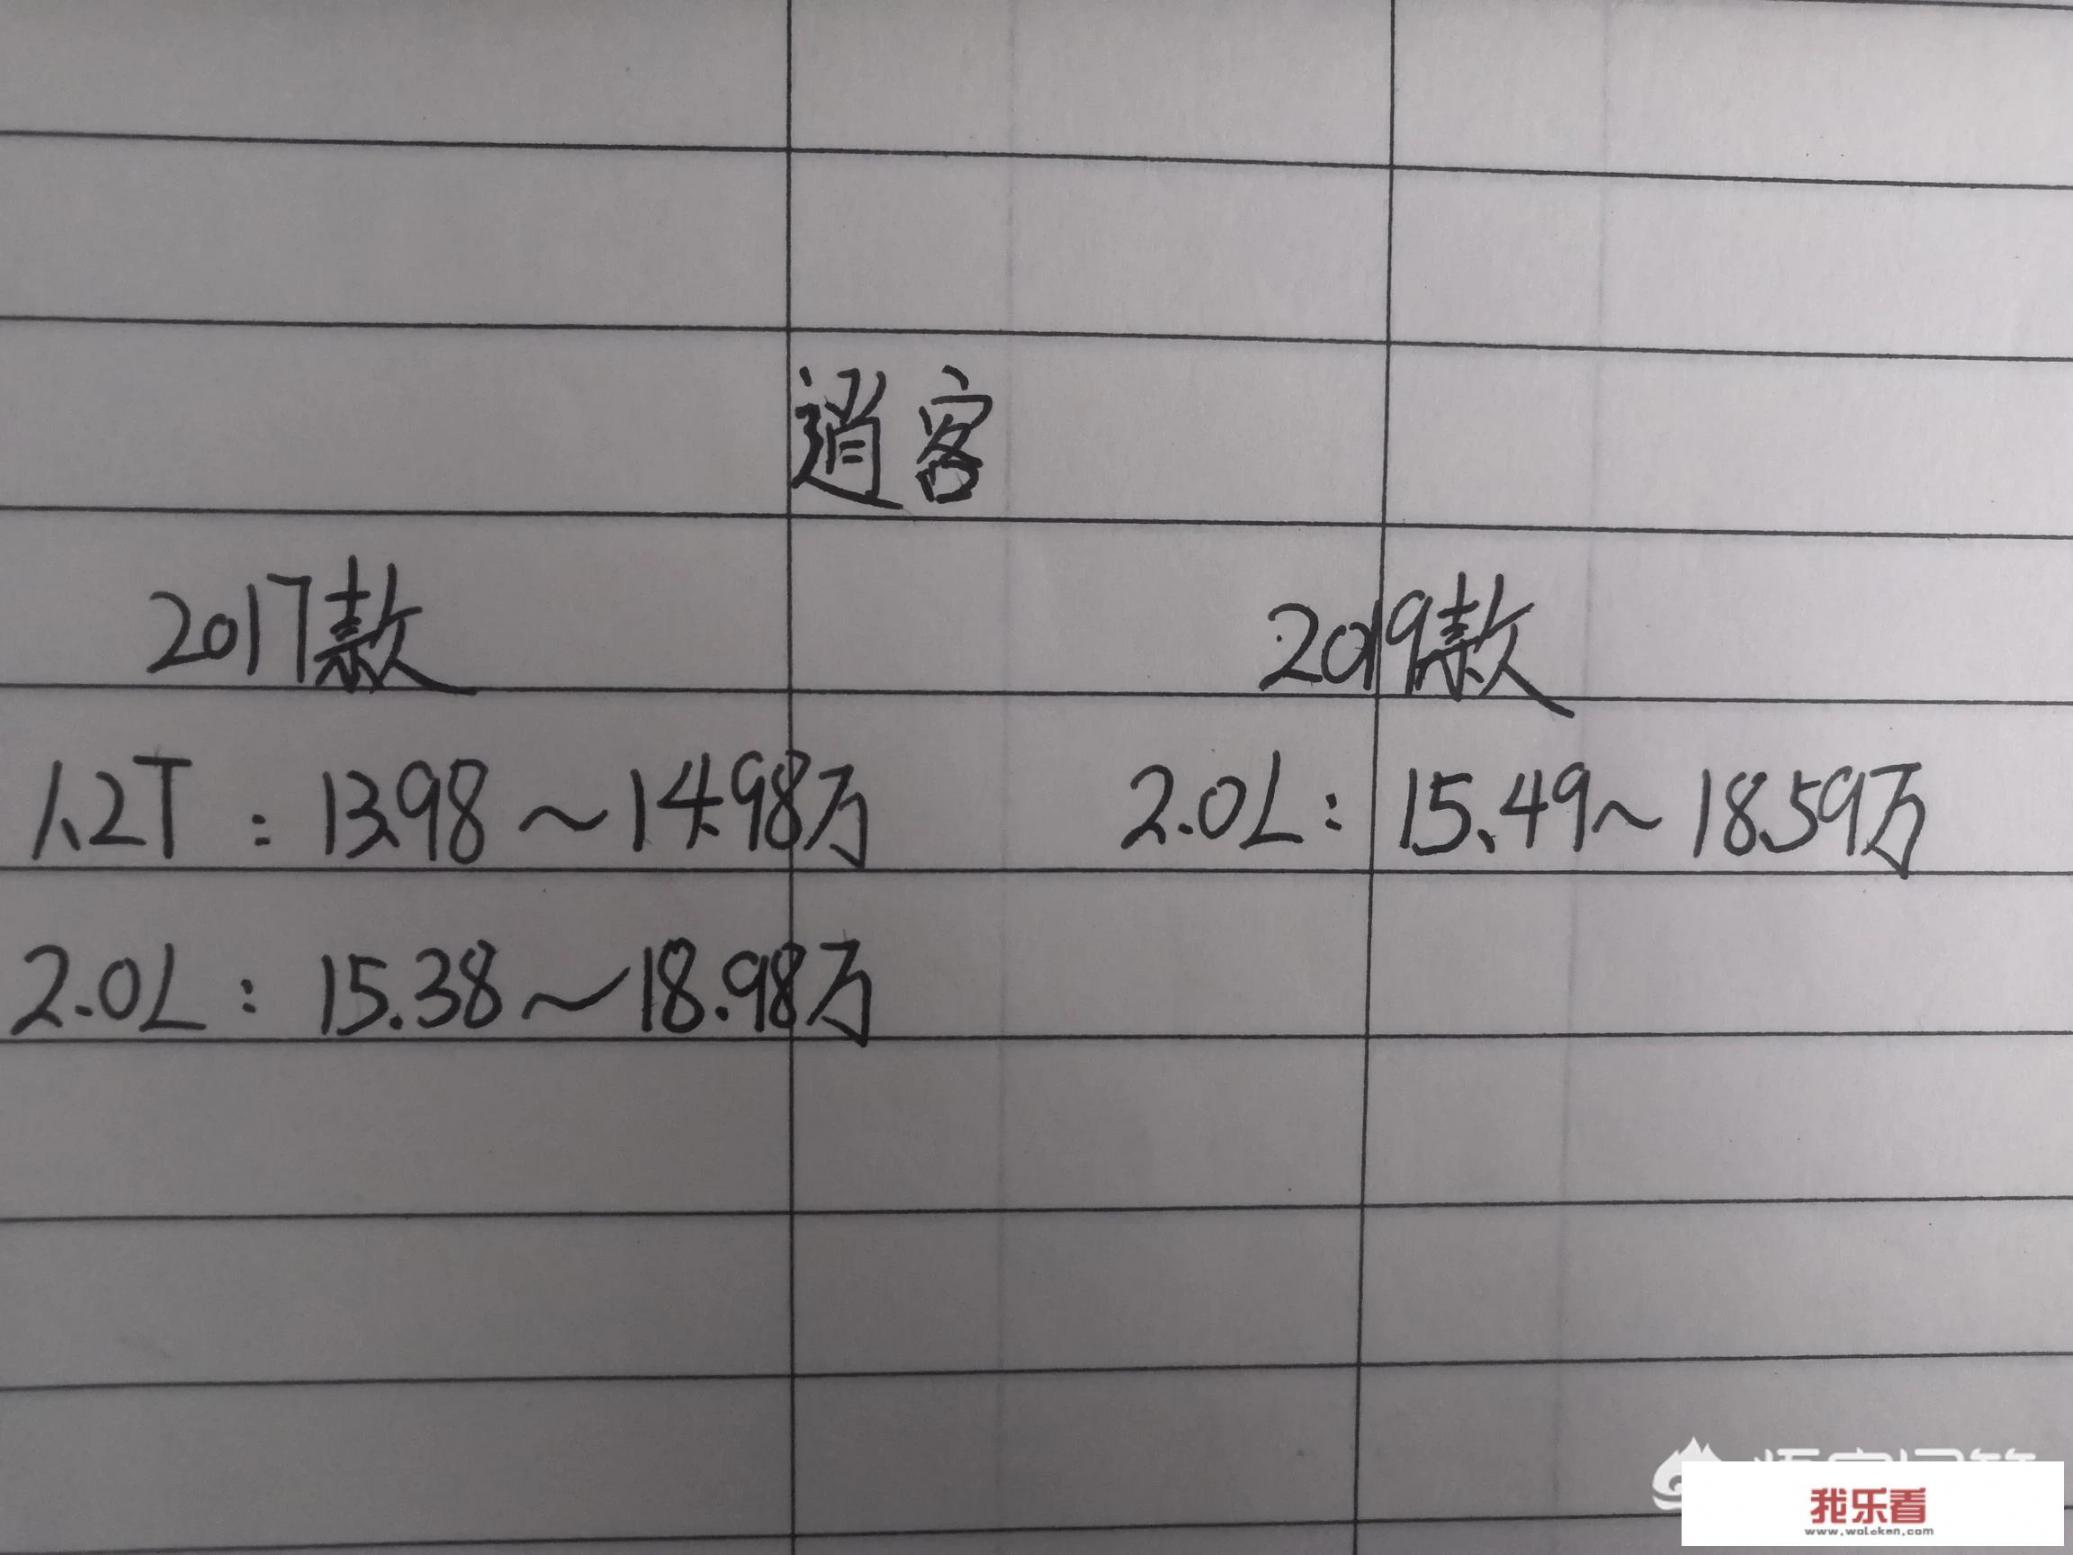 逍客
2017款 2019款
1.2T：13.98～14.98万 2.0L：15.49～18.59万
2.0L：15.38～18.98万
我乐看